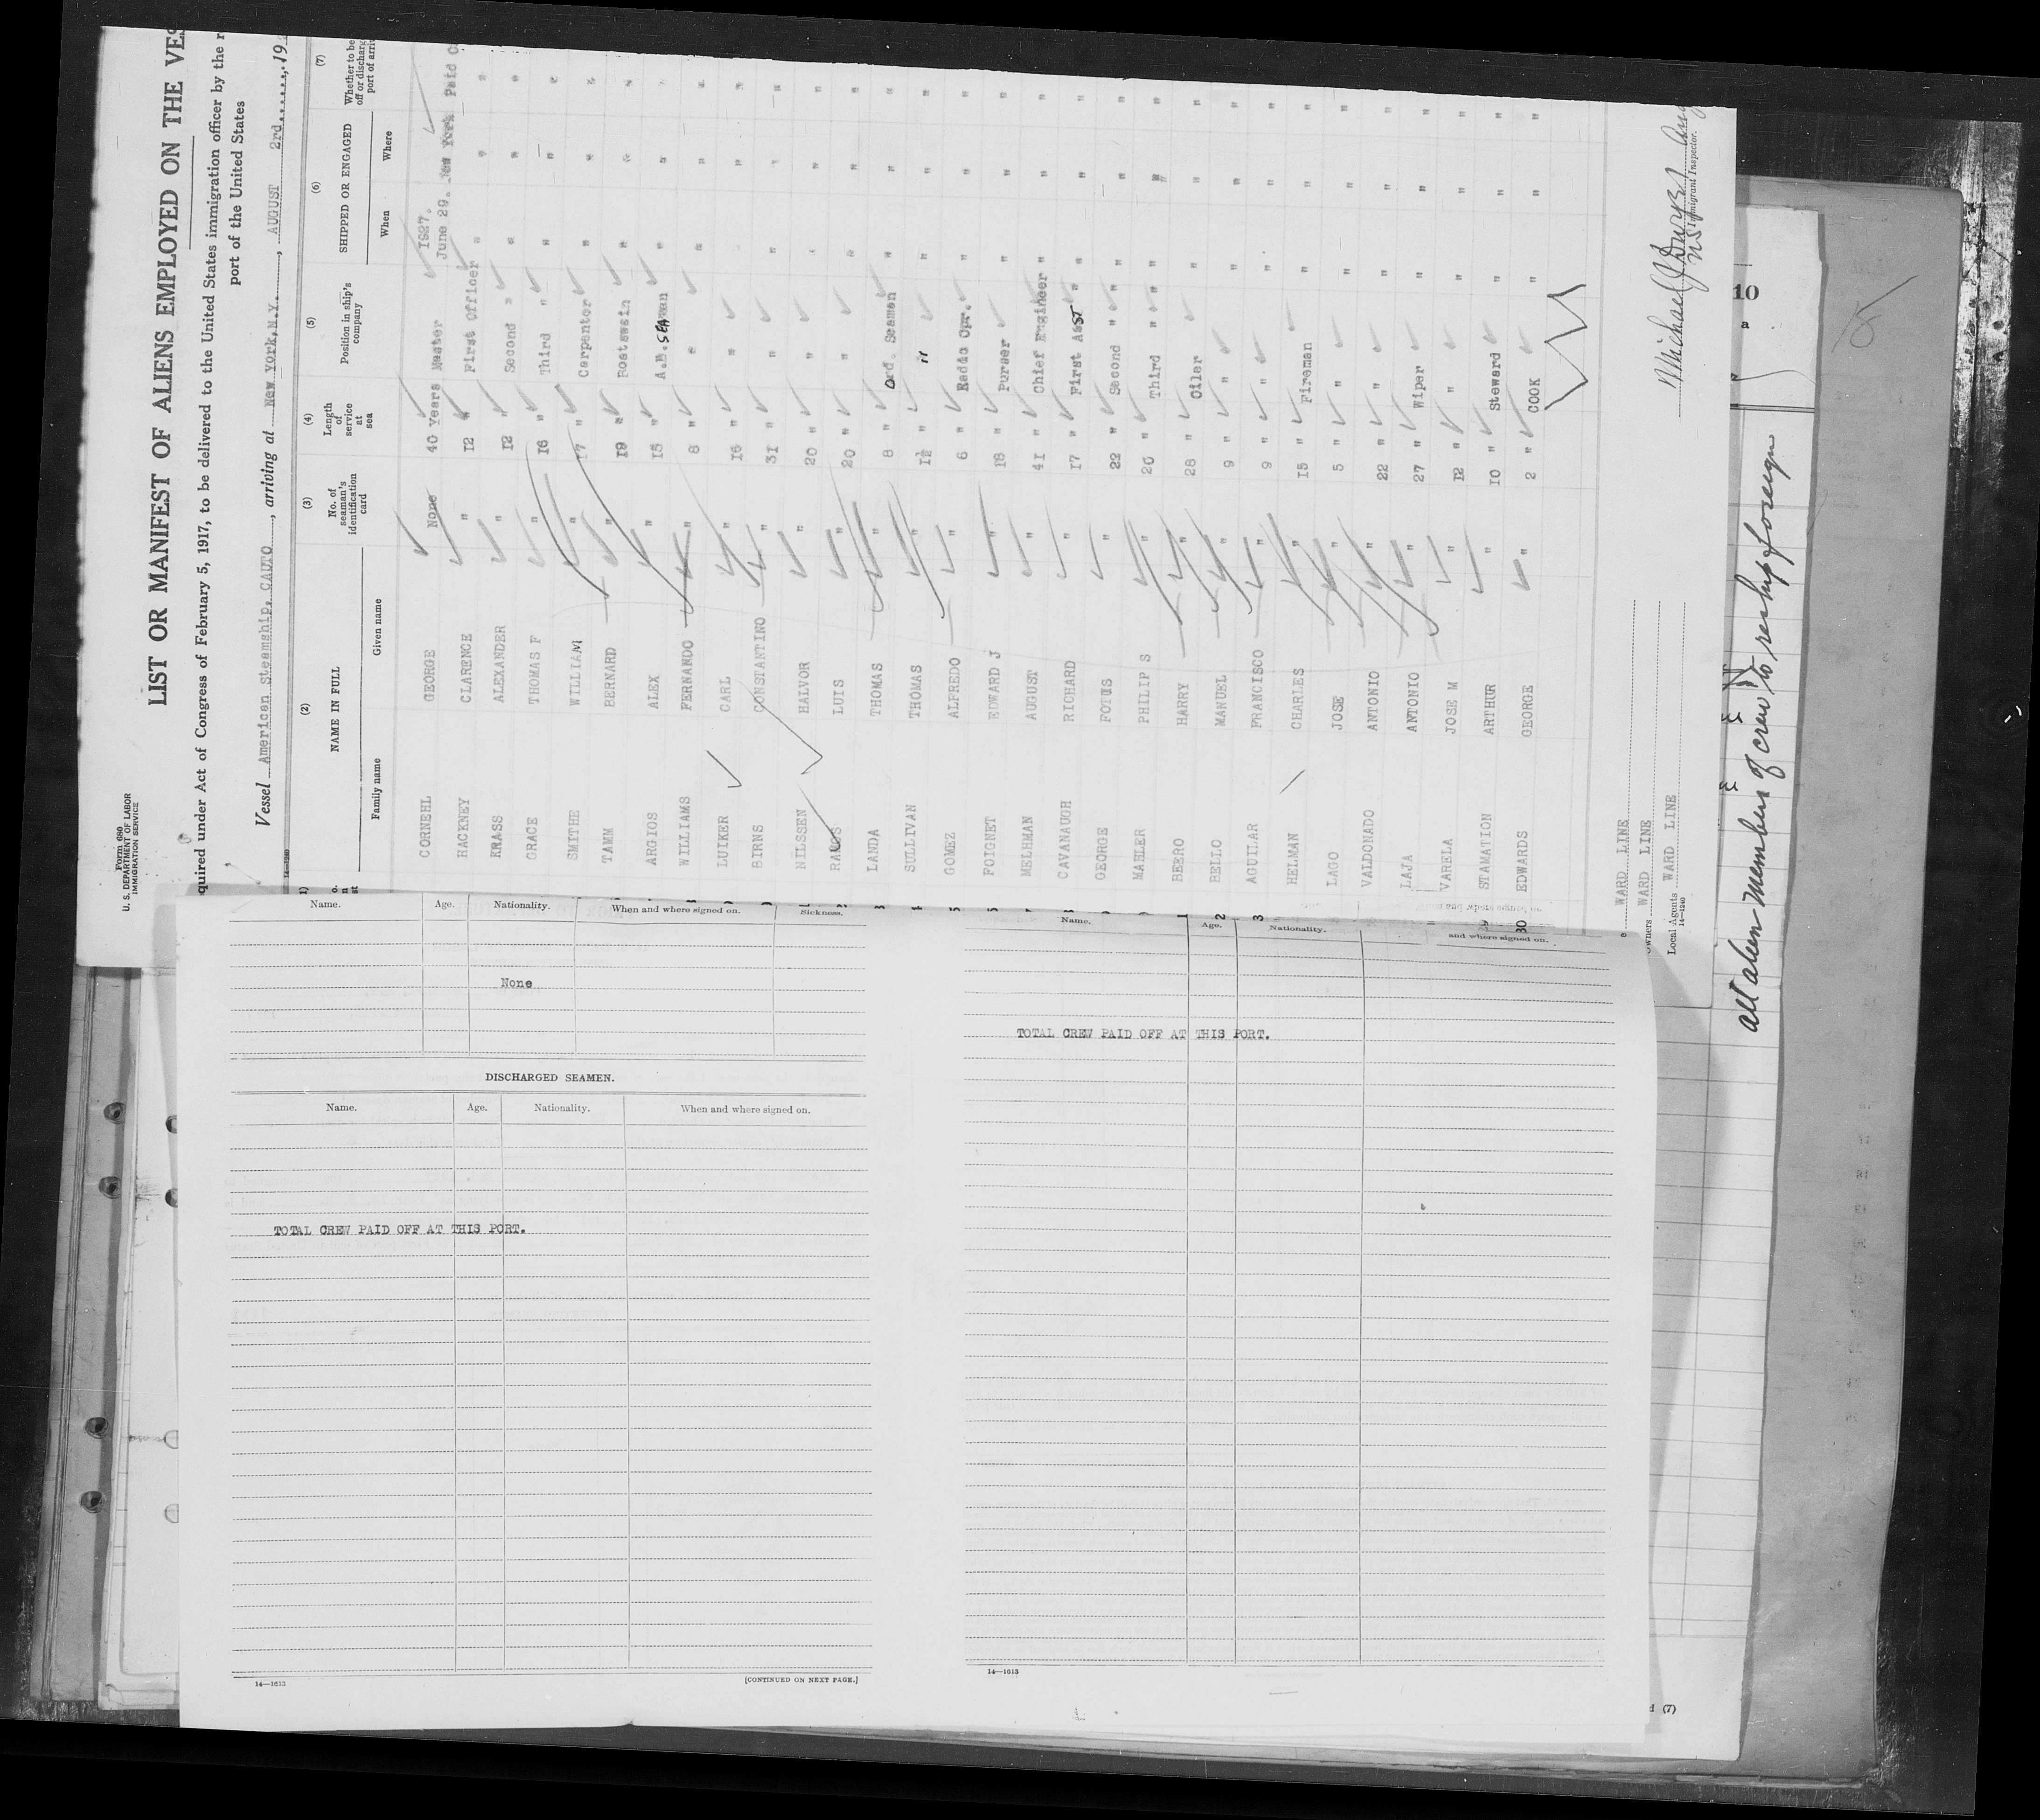 Form 680
U. S. DEPARTMENT OF LABOR
IMMIGRATION SERVICE
LIST OR MANIFEST OF ALIENS EMPLOYED ON THE
quired under Act of Congress of February 5, 1917, to be delivered to the United States immigration officer by the
port of the United States
Vessel American Steamship, CAUTO, arriving at New York, N.Y., AUGUST 2rd, 19
14-1240
(2) (3) (4) (5) (6) (7)
NAME IN FULL No. of seaman's identification card Length of service at sea Position in ship's company SHIPPED OR ENGAGED Whether to be
off or discharg
port of arriv
Family name Given name When Where
1927.
CORNEHL GEORGE None 40 Years Master June 29. New York Paid
HACKNEY CLARENCE " 12 " First Officer " " "
KRASS ALEXANDER " 12 " Second " " " "
GRACE THOMAS F " 16 " Third " " " "
SMITHE WILLIAM " 17 " Carpenter " " "
TAMM BERNARD " 19 " Boatswain " " "
ARGIOS ALEX " 15 " A.B. SEAman " " "
WILLIAMS FERNANDO " 8 " " " " "
LUIKER CARL " 16 " " " "
BIRNS CONSTANTINO " 31 " " " " "
NILSSEN HALVOR " 20 " " " " "
LUIS " 20 " " " " "
LANDA THOMAS " 8 " Ord. Seaman " " "
SULLIVAN THOMAS " 1½ " " " " "
GOMEZ ALFREDO " 6 " Radio Opr. " " "
FOIGNET EDWARD J " 18 " Purser " " "
MELHMAN AUGUST " 41 " Chief Engineer " " "
CAVANAUGH RICHARD " 17 " First ASST " " "
GEORGE FOTUS " 22 " Second " " " "
MAHLER PHILIP S " 20 " Third " " " "
BEERO HARRY " 28 " Oiler " " "
BELLO MANUEL " 9 " " " " "
AGUILAR FRANCISCO " 9 " " " " "
HELMAN CHARLES " 15 " Fireman " " "
LAGO JOSE " 5 " " " " "
VALDONADO ANTONIO " 22 " " " " "
LAJA ANTONIO " 27 " Wiper " " "
VARELA JOSE M " 12 " " " " "
STAMATION ARTHUR " 10 " Steward " " "
30 EDWARDS GEORGE " 2 " COOK " " "
WARD LINE
Owners WARD LINE
Local Agents WARD LINE
14-1240
Immigrant Inspector.
all alien members of crew to reship foreign
10
Name. Age. Nationality. When and where signed on. Sickness.
None
DISCHARGED SEAMEN.
Name. Age. Nationality. When and where signed on.
TOTAL CREW PAID OFF AT THIS PORT.
14—1613 [CONTINUED ON NEXT PAGE.]
Name. Age. Nationality. and where signed on.
TOTAL CREW PAID OFF AT THIS PORT.
14—1613
d (7)